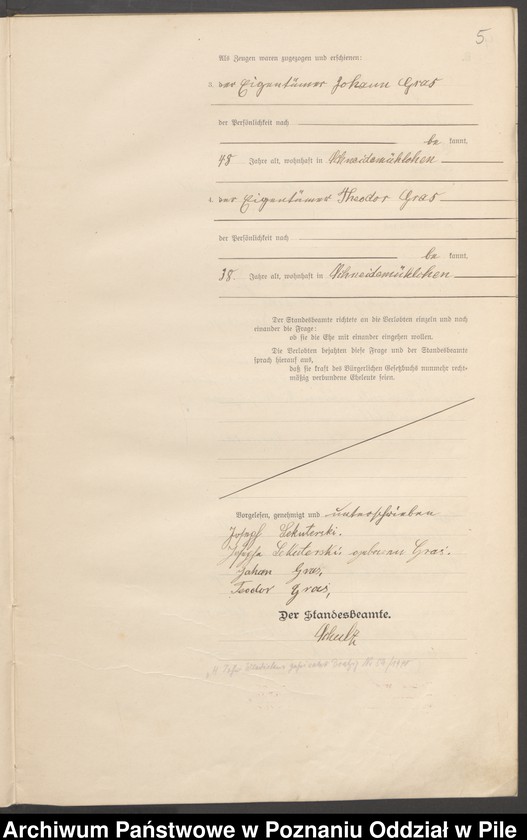 5.
Als Zeugen waren zugezogen und erschienen:
3. der Eigentümer Johann Gras
der Persönlichkeit nach
be kannt,
48 Jahre alt, wohnhaft in Schneidemühlchen
4. der Eigentümer Theodor Gras
der Persönlichkeit nach
be kannt,
38 Jahre alt, wohnhaft in Schneidemühlchen
Der Standesbeamte richtete an die Verlobten einzeln und nach
einander die Frage:
ob sie die Ehe mit einander eingehen wollen.
Die Verlobten bejahten diese Frage und der Standesbeamte
sprach hierauf aus,
daß sie kraft des Bürgerlichen Gesetzbuchs nunmehr recht-
mäßig verbundene Eheleute seien.
Vorgelesen, genehmigt und unterschrieben
Josef
Josepha geboren Gras.
Johan Gras,
Teodor Gras,
Der Standesbeamte.
Schulz
Archiwum Państwowe w Poznaniu Oddział w Pile